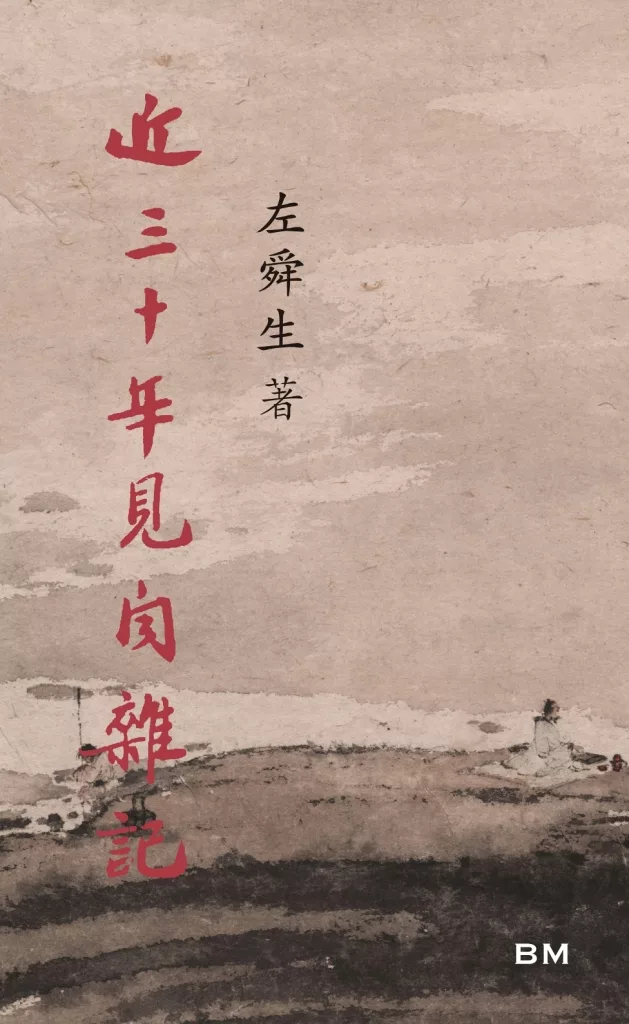 近三十年見聞雜記
左舜生 著
BM